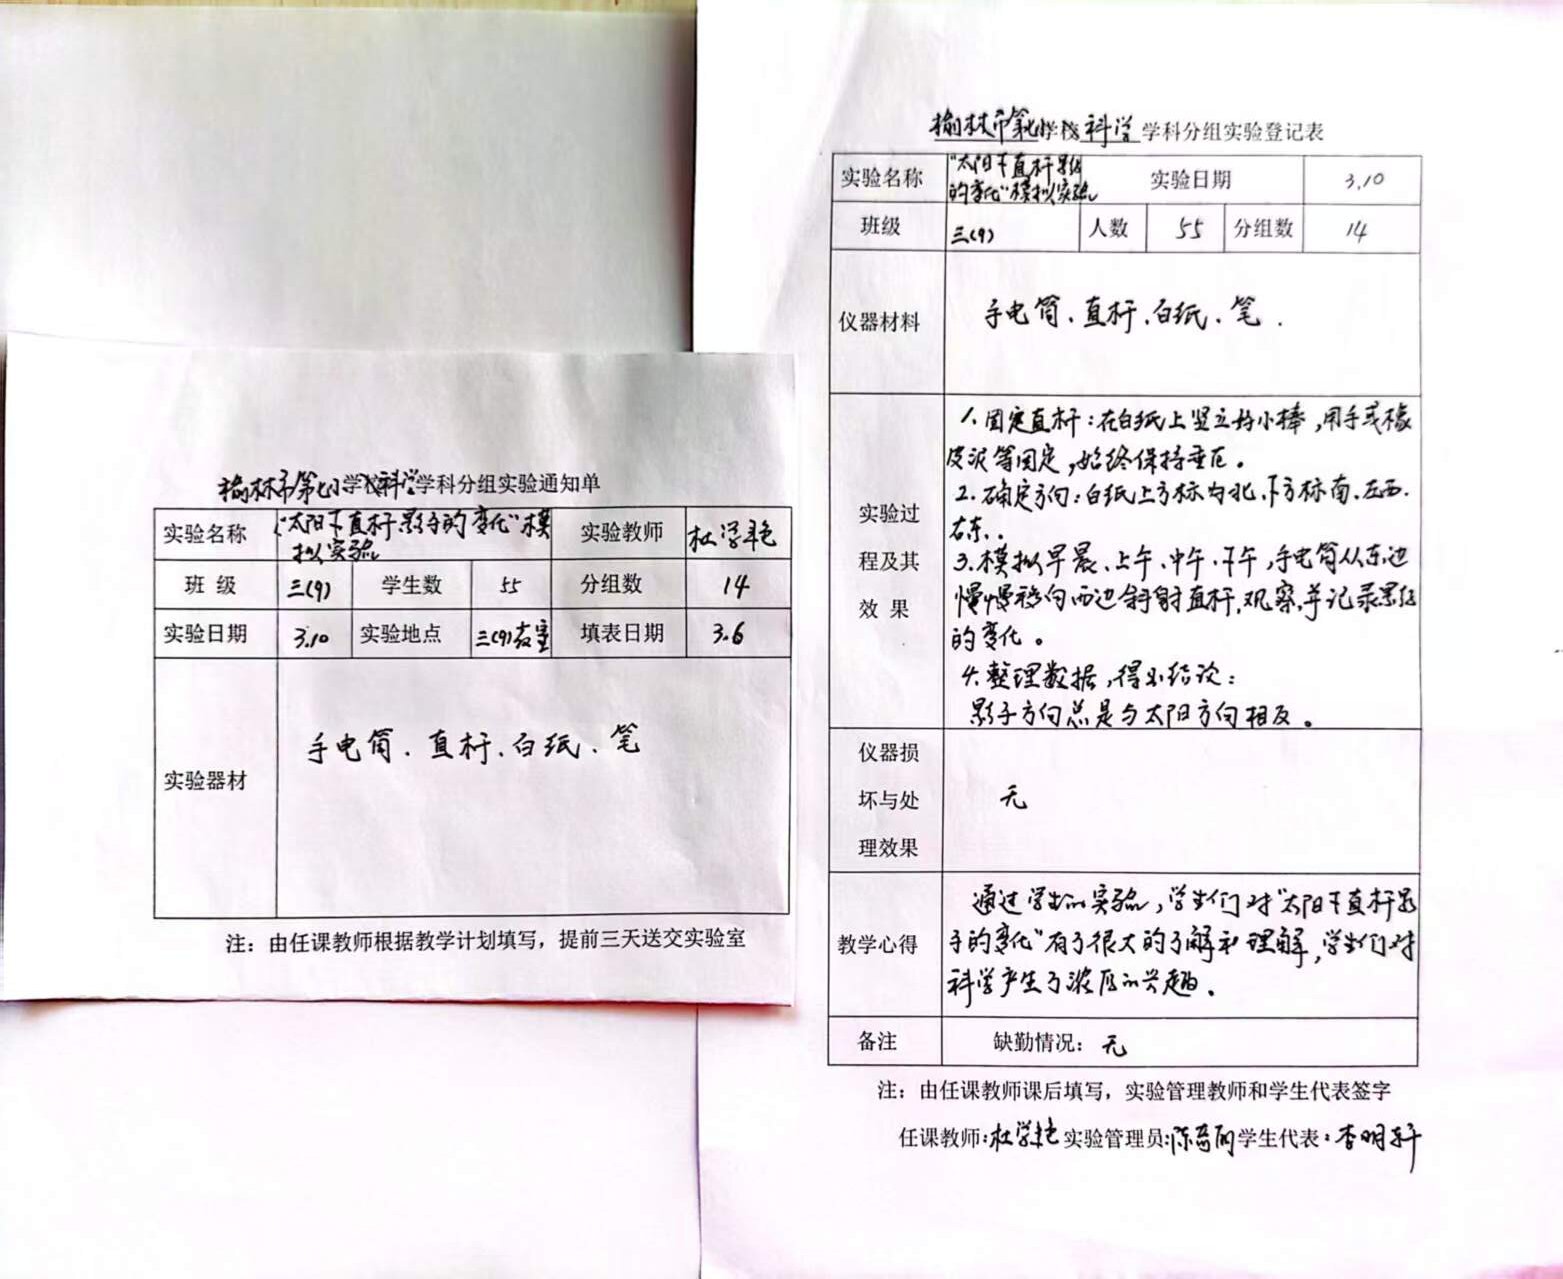 榆林市第七小学校科学学科分组实验通知单
实验名称 "太阳下直杆影子的变化"模拟实验 实验教师 杜学艳
班 级 三(9) 学生数 55 分组数 14
实验日期 3.10 实验地点 三(9)教室 填表日期 3.6
实验器材 手电筒、直杆、白纸、笔
注：由任课教师根据教学计划填写，提前三天送交实验室
榆林市第七小学校科学学科分组实验登记表
实验名称 "太阳下直杆影子的变化"模拟实验 实验日期 3.10
班级 三(9) 人数 55 分组数 14
仪器材料 手电筒、直杆、白纸、笔.
实验过程及其效果
1.固定直杆:在白纸上竖立好小棒,用手或橡
皮泥等固定,始终保持垂直。
2.确定方向:白纸上方标为北、下方标南、左西、
右东。
3.模拟早晨、上午、中午、下午,手电筒从东边
慢慢移向西边斜射直杆,观察,并记录影子
的变化。
4.整理数据,得出结论:
影子方向总是与太阳方向相反。
仪器损坏与处理效果 无
教学心得
通过学生的实验,学生们对"太阳下直杆影
子的变化"有了很大的了解和理解,学生们对
科学产生了浓厚的兴趣。
备注 缺勤情况：无
注：由任课教师课后填写，实验管理教师和学生代表签字
任课教师:杜学艳 实验管理员: 学生代表:李明轩